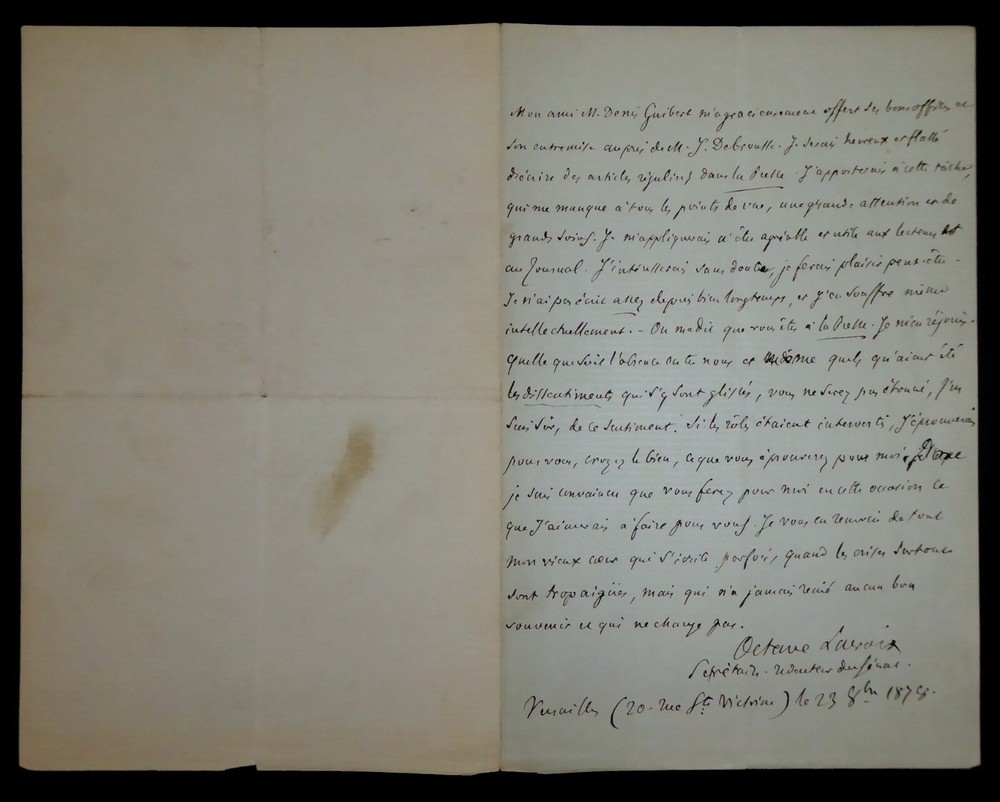 Mon ami M. Denis Guibert m'a gracieusement offert ses bons offices et
son entremise auprès de M. J. Debrousse. Je serais heureux et flatté
d'écrire des articles réguliers dans la Presse. J'apporterais à cette tâche,
qui me manque à tous les points de vue, une grande attention et de
grands soins. Je m'appliquerais à être agréable et utile aux lecteurs et
au Journal. J'intéresserais sans doute, je ferais plaisir peut-être.
Je n'ai pas écrit assez depuis bien longtemps, et j'en souffre même
intellectuellement. - On me dit que vous êtes à la Presse. Je m'en réjouis.
Quelle que soit l'absence entre nous et même quels qu'aient été
les dissentiments qui s'y sont glissés, vous ne serez pas étonné, j'en
suis sûr, de ce sentiment. Si les rôles étaient intervertis, j'éprouverais
pour vous, croyez le bien, ce que vous éprouverez pour moi,
je suis convaincu que vous ferez pour moi en cette occasion ce
que j'aimerais à faire pour vous. Je vous en remercie de tout
mon vieux cœur qui s'irrite parfois, quand les crises surtout
sont trop aigües, mais qui n'a jamais renié aucun bon
souvenir et qui ne change pas.
Octave Lacroix
Secrétaire-rédacteur du Sénat.
Versailles (20 - rue Ste Victoire) le 23 8bre 1878.